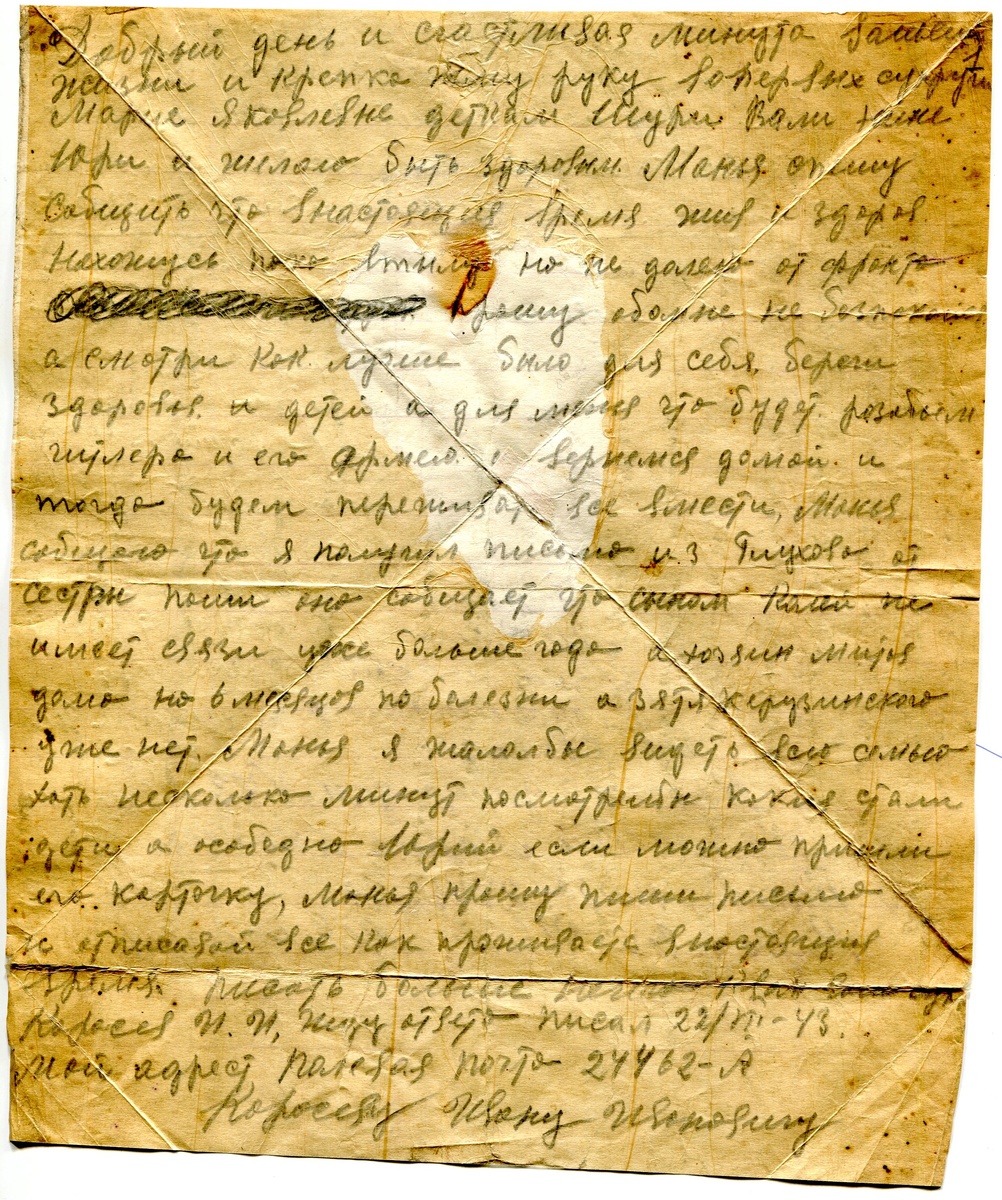 Добрый день и счастливая минута вашей
жизни и крепко жму руку вопервых супруги
Марие Яковлевне деткам Шури Вали также
Юри и желаю быть здоровым. Манья опишу
собщить что внастоящия время жив и здоров.
нахожусь пока втылу но не далеко от фронта
прошу обомне не безпокоится
а смотри как лучше было для себя, береги
здоровья и детей а для меня что будет розобьем
гитлера и его армею и вернемся домой и
тогда будем переживать все вмести, Манья
собщаю что я получил письмо из Глухова от
сестры поши она собщает что сыном Колей не
имеет связи уже больше года а хозяин митя
дома но 6 месяцов по болезни а зятя
уже нет. Манья я жалолбы видеть всю семью
хоть несколько минут посмотрелбы какия стали
дети а особедно Юрий если можно пришли
его карточку, Манья прошу пиши письмо
и отписавай все как проживаете внастоящия
время. писать больше нечего
И. И, жду ответа писал 22/VII-43.
Мой адрест палевая почта 24462-А
Ивану Ивановичу